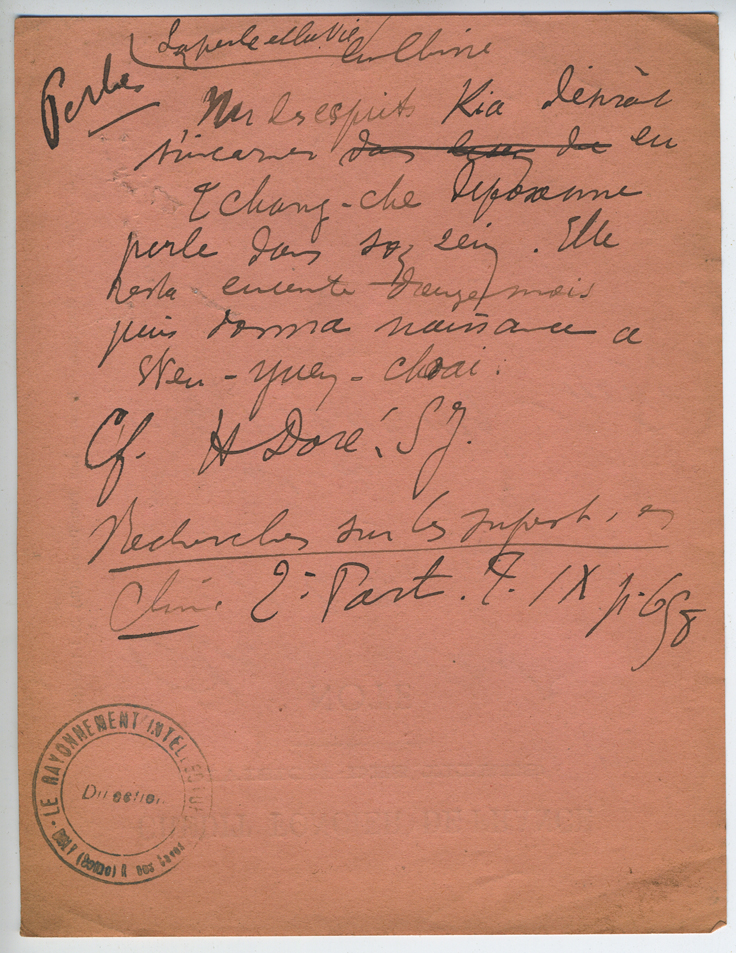 La perle et la vie
en Chine
Perles
Un des esprits Kia désirait
s'incarner dans le sein de en
Tchang-che déposa une
perle dans son sein. Elle
resta enceinte douze mois
puis donna naissance a
Wen-yuen-choai.
Cf. H Doré. S.J.
Recherches sur les superst. en
Chine 2e Part. T. IX p. 658
LE RAYONNEMENT INTELLECTUEL
Direction